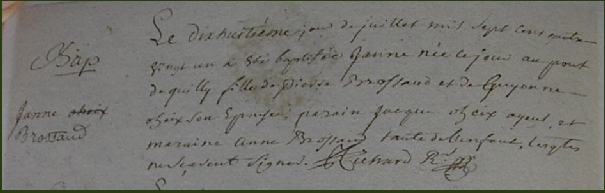 Bap
Janne choix
Brossaud
Le dixhuitiéme jour de juillet mil sept cent quatre
vingt un a été baptisée Janne née ce jour au pont
de quilly fille de Pierre Brossaud et de Guyonne
choix son Epouse, parain Jacque choix ayeul, et
maraine Anne Brossaud tante de l'enfant, lesqls
ne scavent signer. Richard